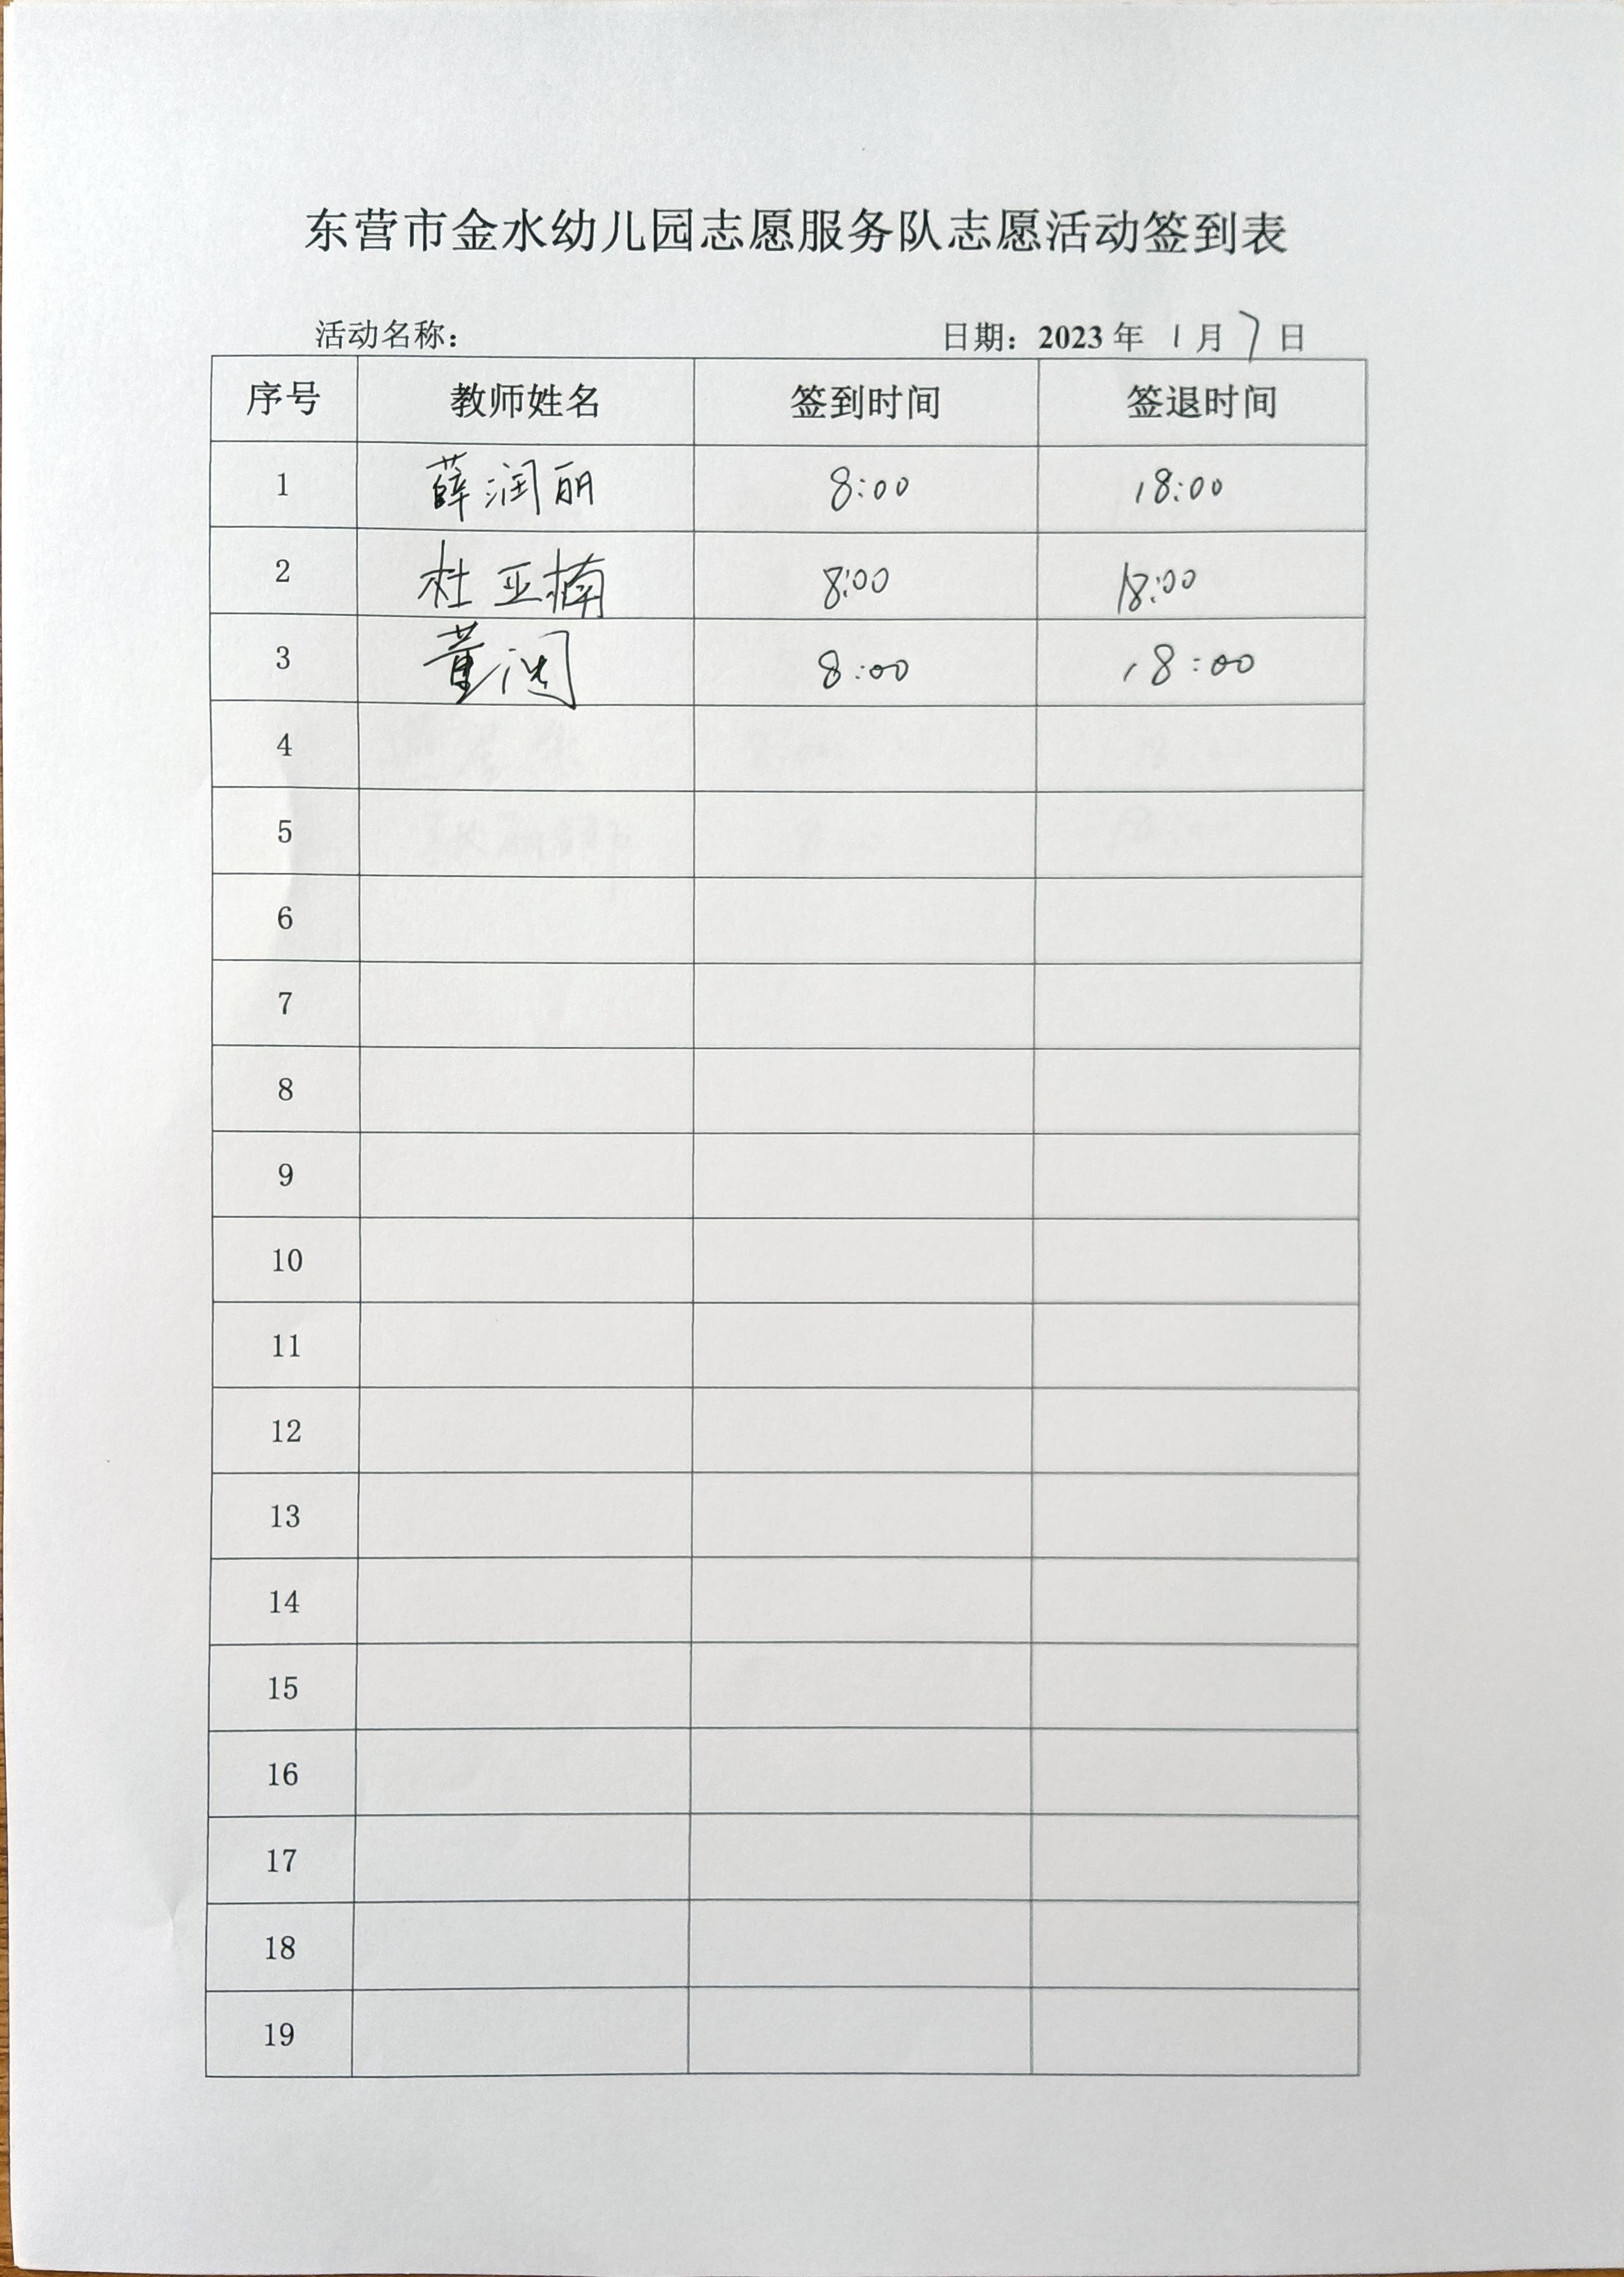 东营市金水幼儿园志愿服务队志愿活动签到表
活动名称： 日期：2023 年 1 月 7 日
序号 教师姓名 签到时间 签退时间
1 薛润丽 8:00 18:00
2 杜亚楠 8:00 18:00
3 董润 8:00 18:00
4
5
6
7
8
9
10
11
12
13
14
15
16
17
18
19